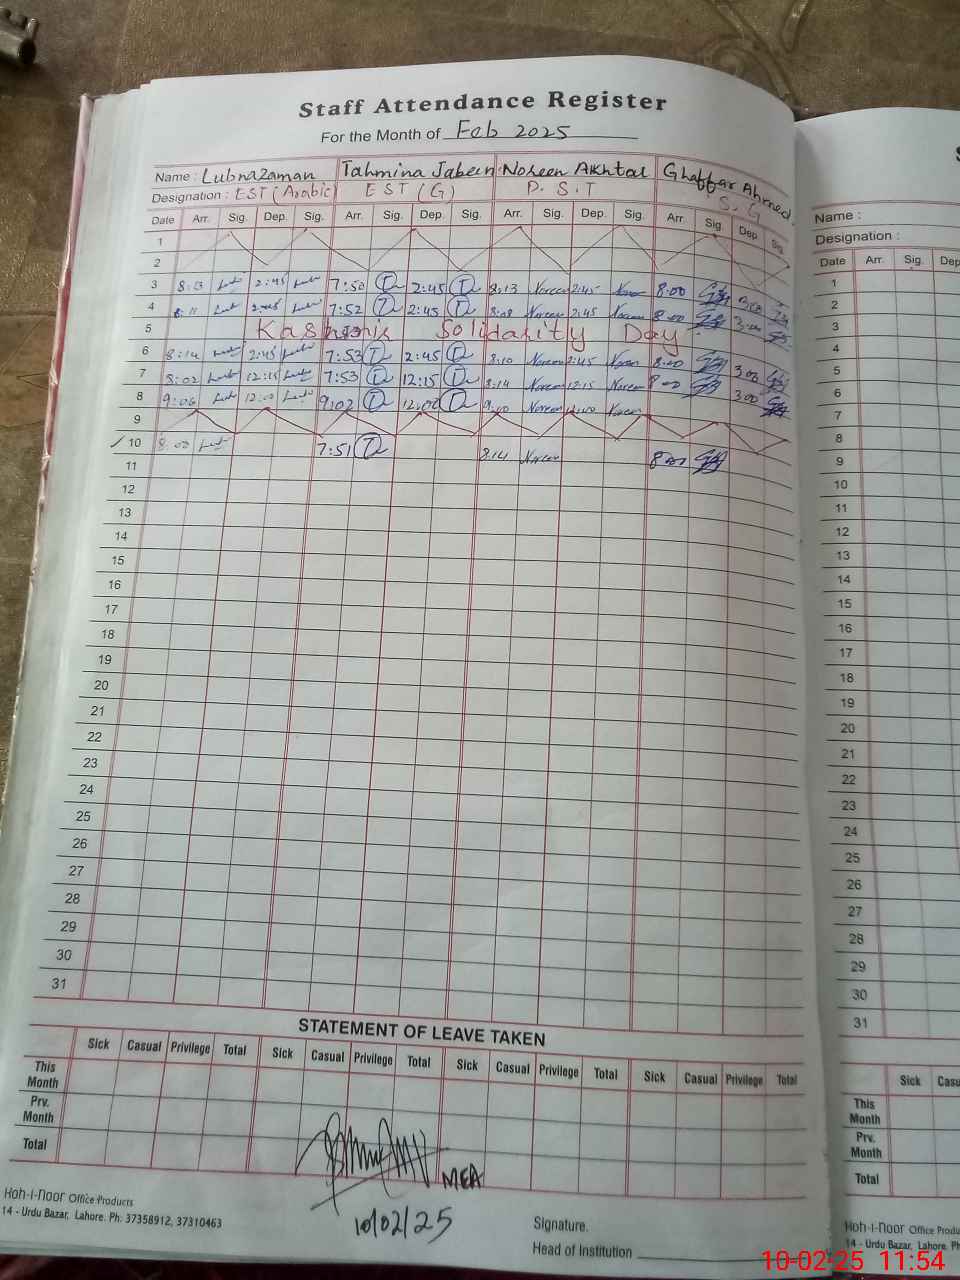 Staff Attendance Register
For the Month of Feb 2025
Name : Lubna Zaman Tahmina Jabeen Noheen Akhtal Ghaffar Ahmed
Designation : EST (Arabic) EST (G) P. S. T S. G
Date Arr. Sig. Dep. Sig. Arr. Sig. Dep. Sig. Arr. Sig. Dep. Sig. Arr. Sig. Dep Sig.
1
2
3 8:13 2:45 7:50 2:45 8:13 Noreen 2:45 8:00 3:00
4 8:11 2:45 7:52 2:45 8:08 Noreen 2:45 Noreen 8:00 3:00
5 Kashmir Solidarity Day
6 8:14 2:45 7:53 2:45 8:10 Noreen 2:45 Noreen 8:00 3:00
7 8:02 12:15 7:53 12:15 8:14 Noreen 12:15 Noreen 8:00 3:00
8 9:06 12:00 9:02 12:00 9:00 Noreen 12:00 Noreen
9
10 8:00 7:51 8:14 Noreen 8:00
11
12
13
14
15
16
17
18
19
20
21
22
23
24
25
26
27
28
29
30
31
STATEMENT OF LEAVE TAKEN
Sick Casual Privilege Total Sick Casual Privilege Total Sick Casual Privilege Total Sick Casual Privilege Total
This Month
Prv. Month
Total
MEA
10/02/25
Koh-i-noor Office Products
14 - Urdu Bazar, Lahore. Ph: 37358912, 37310463
Signature.
Head of Institution
S
Name :
Designation :
Date Arr. Sig. Dep
1
2
3
4
5
6
7
8
9
10
11
12
13
14
15
16
17
18
19
20
21
22
23
24
25
26
27
28
29
30
31
Sick Casu
This Month
Prv. Month
Total
Koh-i-noor Office Produ
14 - Urdu Bazar, Lahore. Ph
10-02-25 11:54